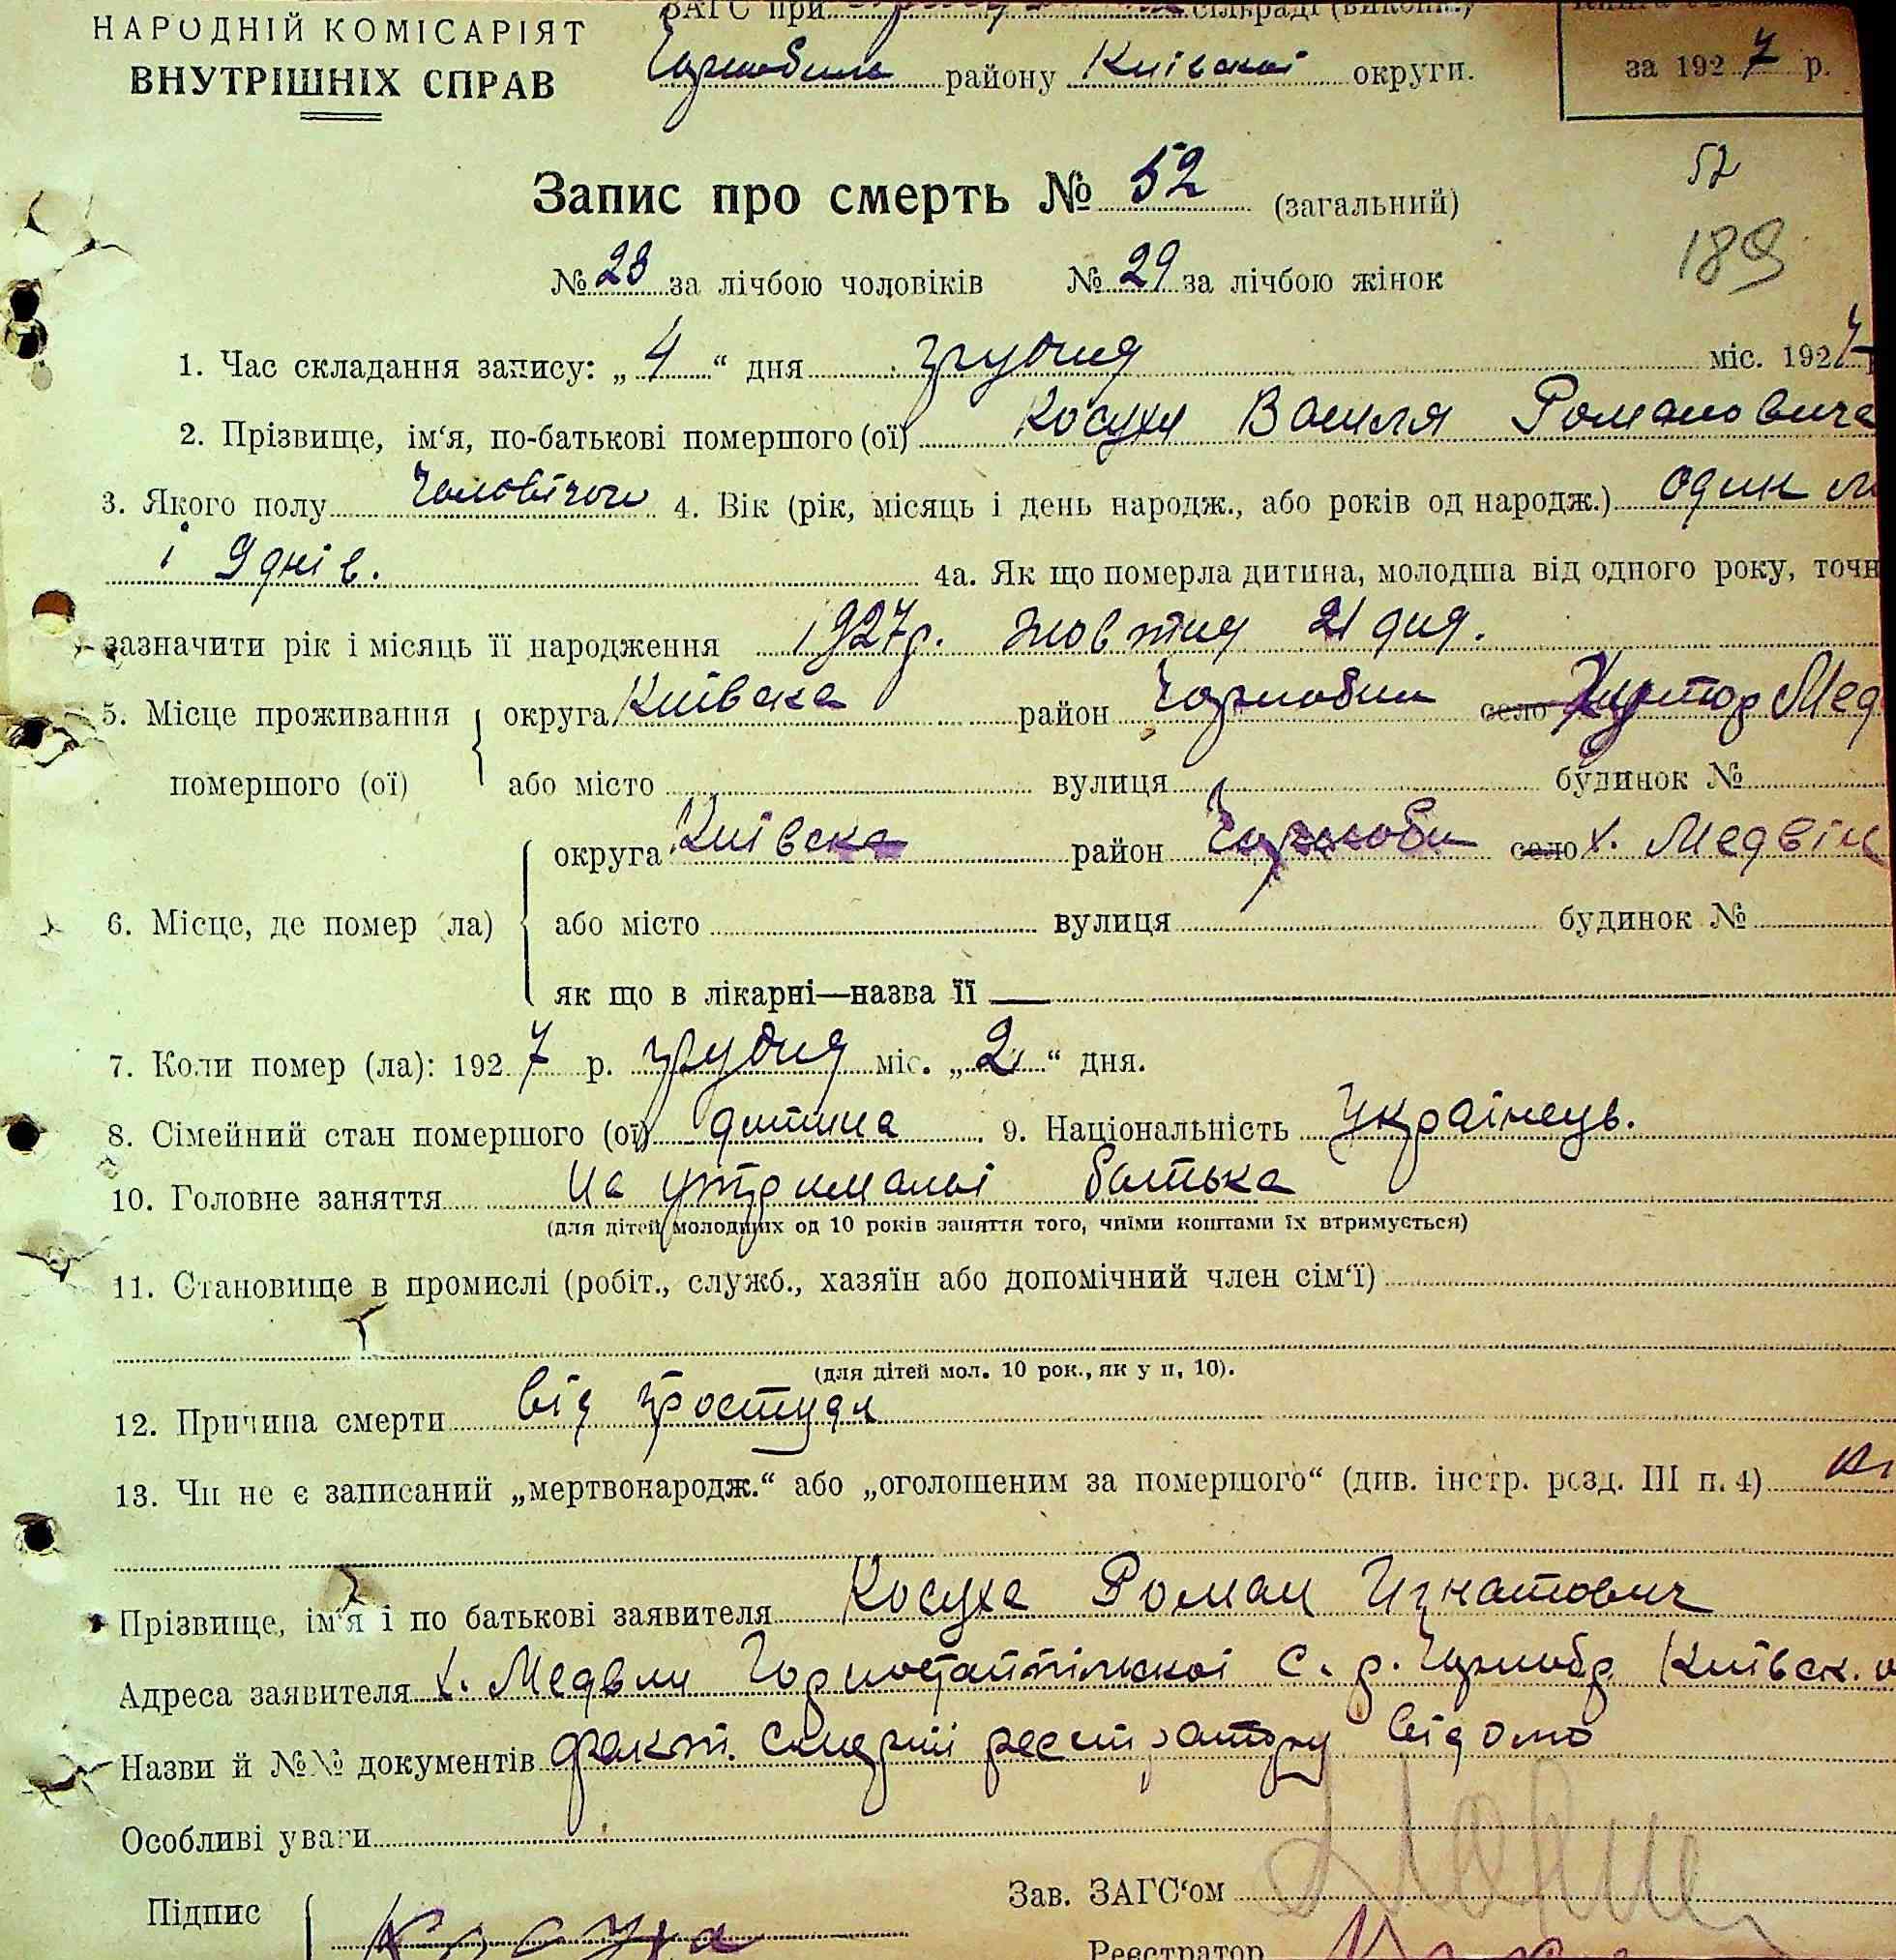 НАРОДНІЙ КОМІСАРІЯТ
ВНУТРІШНІХ СПРАВ
ЗАГС при сільраді (викон.)
району Київської округи.
за 1927 р.
Запис про смерть № 52 (загальний)
52
189
№ 23 за лічбою чоловіків № 29 за лічбою жінок
1. Час складання запису: „4“ дня грудня міс. 1927
2. Прізвище, ім‘я, по-батькові помершого (ої) Косухи Василя Романовича
3. Якого полу чоловічого 4. Вік (рік, місяць і день народж., або років од народж.) один м
і 9 днів.
4а. Як що померла дитина, молодша від одного року, точн
зазначити рік і місяць її народження 1927р. жовтня 21 дня.
5. Місце проживання помершого (ої) округа Київська район Чорнобил село Хутор Мед
або місто вулиця будинок №
6. Місце, де помер (ла) округа Київска район Чорноби село х. Медвін
або місто вулиця будинок №
як що в лікарні—назва її —
7. Коли помер (ла): 1927 р. грудня міс. „2“ дня.
8. Сімейний стан помершого (ої) дитина 9. Національність Українець.
10. Головне заняття На утриманні батька
(для дітей молодших од 10 років заняття того, чиїми коштами їх втримується)
11. Становище в промислі (робіт., служб., хазяїн або допомічний член сім‘ї)
(для дітей мол. 10 рок., як у п, 10).
12. Причина смерти від простуди
13. Чи не є записаний „мертвонародж.“ або „оголошеним за помершого“ (див. інстр. розд. III п. 4)
Прізвище, ім‘я і по батькові заявителя Косуха Роман Игнатович
Адреса заявителя х. Горностайпільської С. р. Чорнобр Київск. о
Назви й №№ документів факт. смерті реєстратору відомо
Особливі уваги
Підпис
Зав. ЗАГС‘ом
Реєстратор